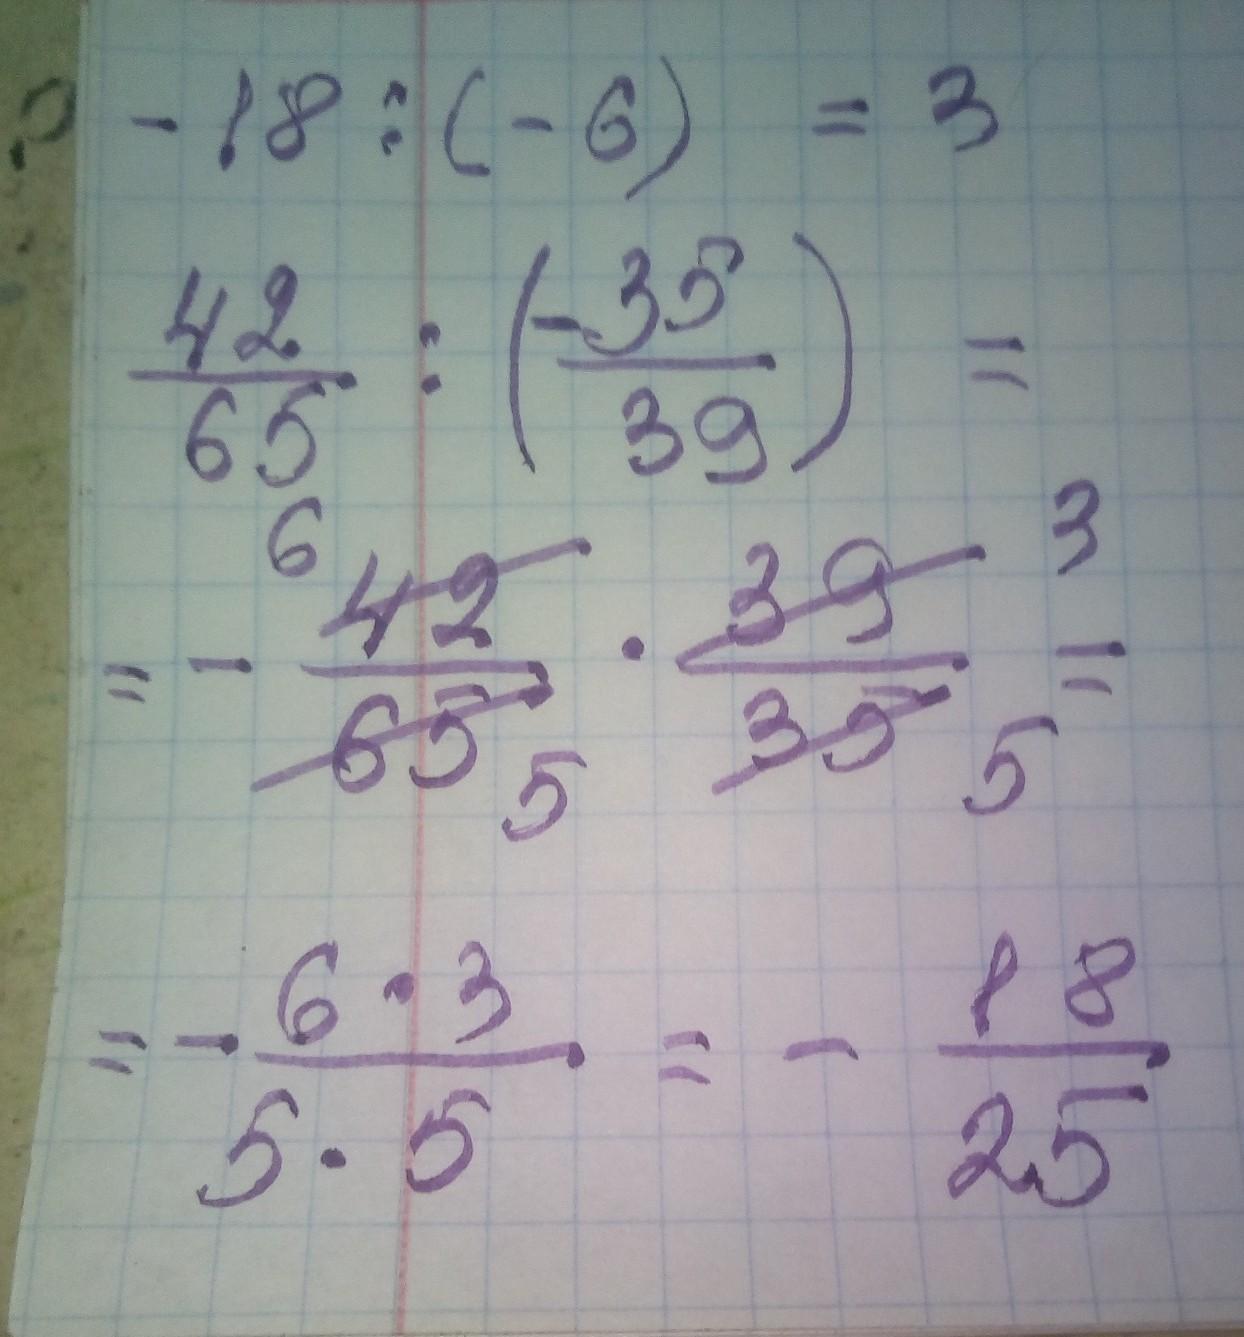 -18 : (-6) = 3
42/65 : (-35/39) =
6 3
= - 42/65 · 39/35 =
5 5
= - 6·3/5·5 = - 18/25